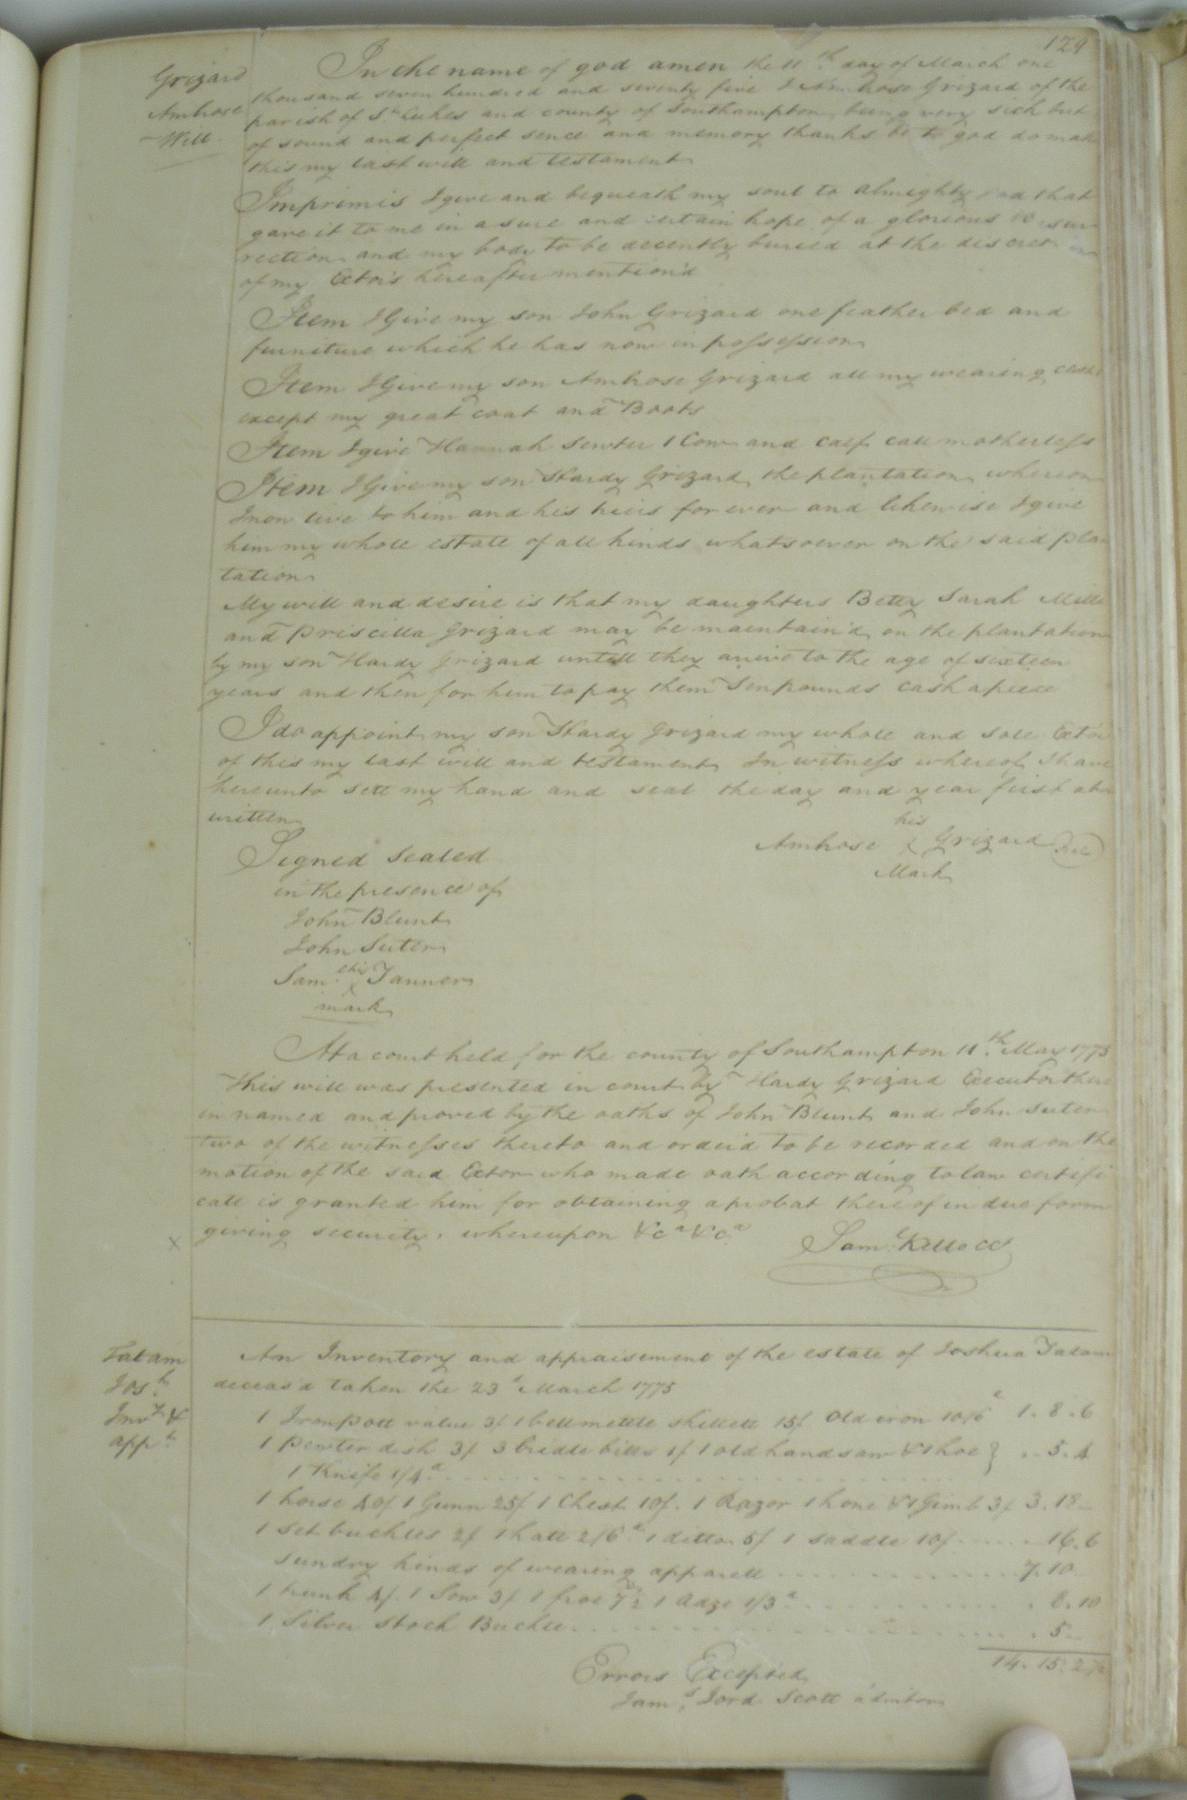 129
Grizard
Ambrose
Will
In the name of god amen the 11th day of March one
thousand seven hundred and seventy five I Ambrose Grizard of the
parish of St Lukes and county of Southampton being very sick but
of sound and perfect sence and memory thanks be to god do make
this my last will and testament
Imprimis I give and bequeath my soul to almighty god that
gave it to me in a sure and certain hope of a glorious resur
rection and my body to be decently buried at the discretion
of my Extors hereafter mention'd
Item I Give my son John Grizard one feather bed and
furniture which he has now in possession
Item I Give my son Ambrose Grizard all my wearing cloths
except my great coat and Boots
Item I give Hannah Sewter 1 Cow and calf call motherless
Item I Give my son Hardy Grizard the plantation whereon
I now live to him and his heirs for ever and likewise I give
him my whole estate of all kinds whatsoever on the said plan
tation
My will and desire is that my daughters Betty Sarah Milla
and Priscilla Grizard may be maintain'd on the plantation
by my son Hardy Grizard untill they arive to the age of sixteen
years and then for him to pay them Ten pounds cash apiece
I do appoint my son Hardy Grizard my whole and sole Extor
of this my last will and testament In witness whereof I have
hereunto sett my hand and seal the day and year first abo
written
his
Ambrose X Grizard Seal
Mark
Signed Sealed
in the presence of
John Blunt
John Suter
Sam. his X Tanner
mark
At a court held for the county of Southampton 11th May 1775
This will was presented in court by Hardy Grizard Executor there
in named and proved by the oaths of John Blunt and John Suter
two of the witnesses thereto and order'd to be recorded and on the
motion of the said Extor who made oath according to law certifi
cate is granted him for obtaining a probat thereof in due form
giving security, whereupon &ca &ca
Sam Kello CC
X
Tatam
Josh
Invy &
appt
An Inventory and appraisement of the estate of Joshua Tatam
deceas'd taken the 23d March 1775
1 Iron Pott value 3/ 1 bell mettle skillett 15/ Old iron 10/6d 1.8.6
1 pewter dish 3/ 3 bridle bitts 1/ 1 old handsaw & 1 hoe } .5.4
1 Knife 1/4d
1 horse 40/ 1 Gunn 25/ 1 Chest 10/. 1 Razor 1 hone & 1 Gimb 3/ 3.18
1 set buckles 2/ 1 hatt 2/6d 1 ditto 5/ 1 saddle 10/ .16.6
sundry kinds of wearing apparell 7.10
1 trunk 4/. 1 Sow 3/ 1 froe 7½ 1 Adze 1/3d .8.10
1 Silver Stock Buckle .5
14.15.2
Errors Excepted
Jams Jord. Scott admitor